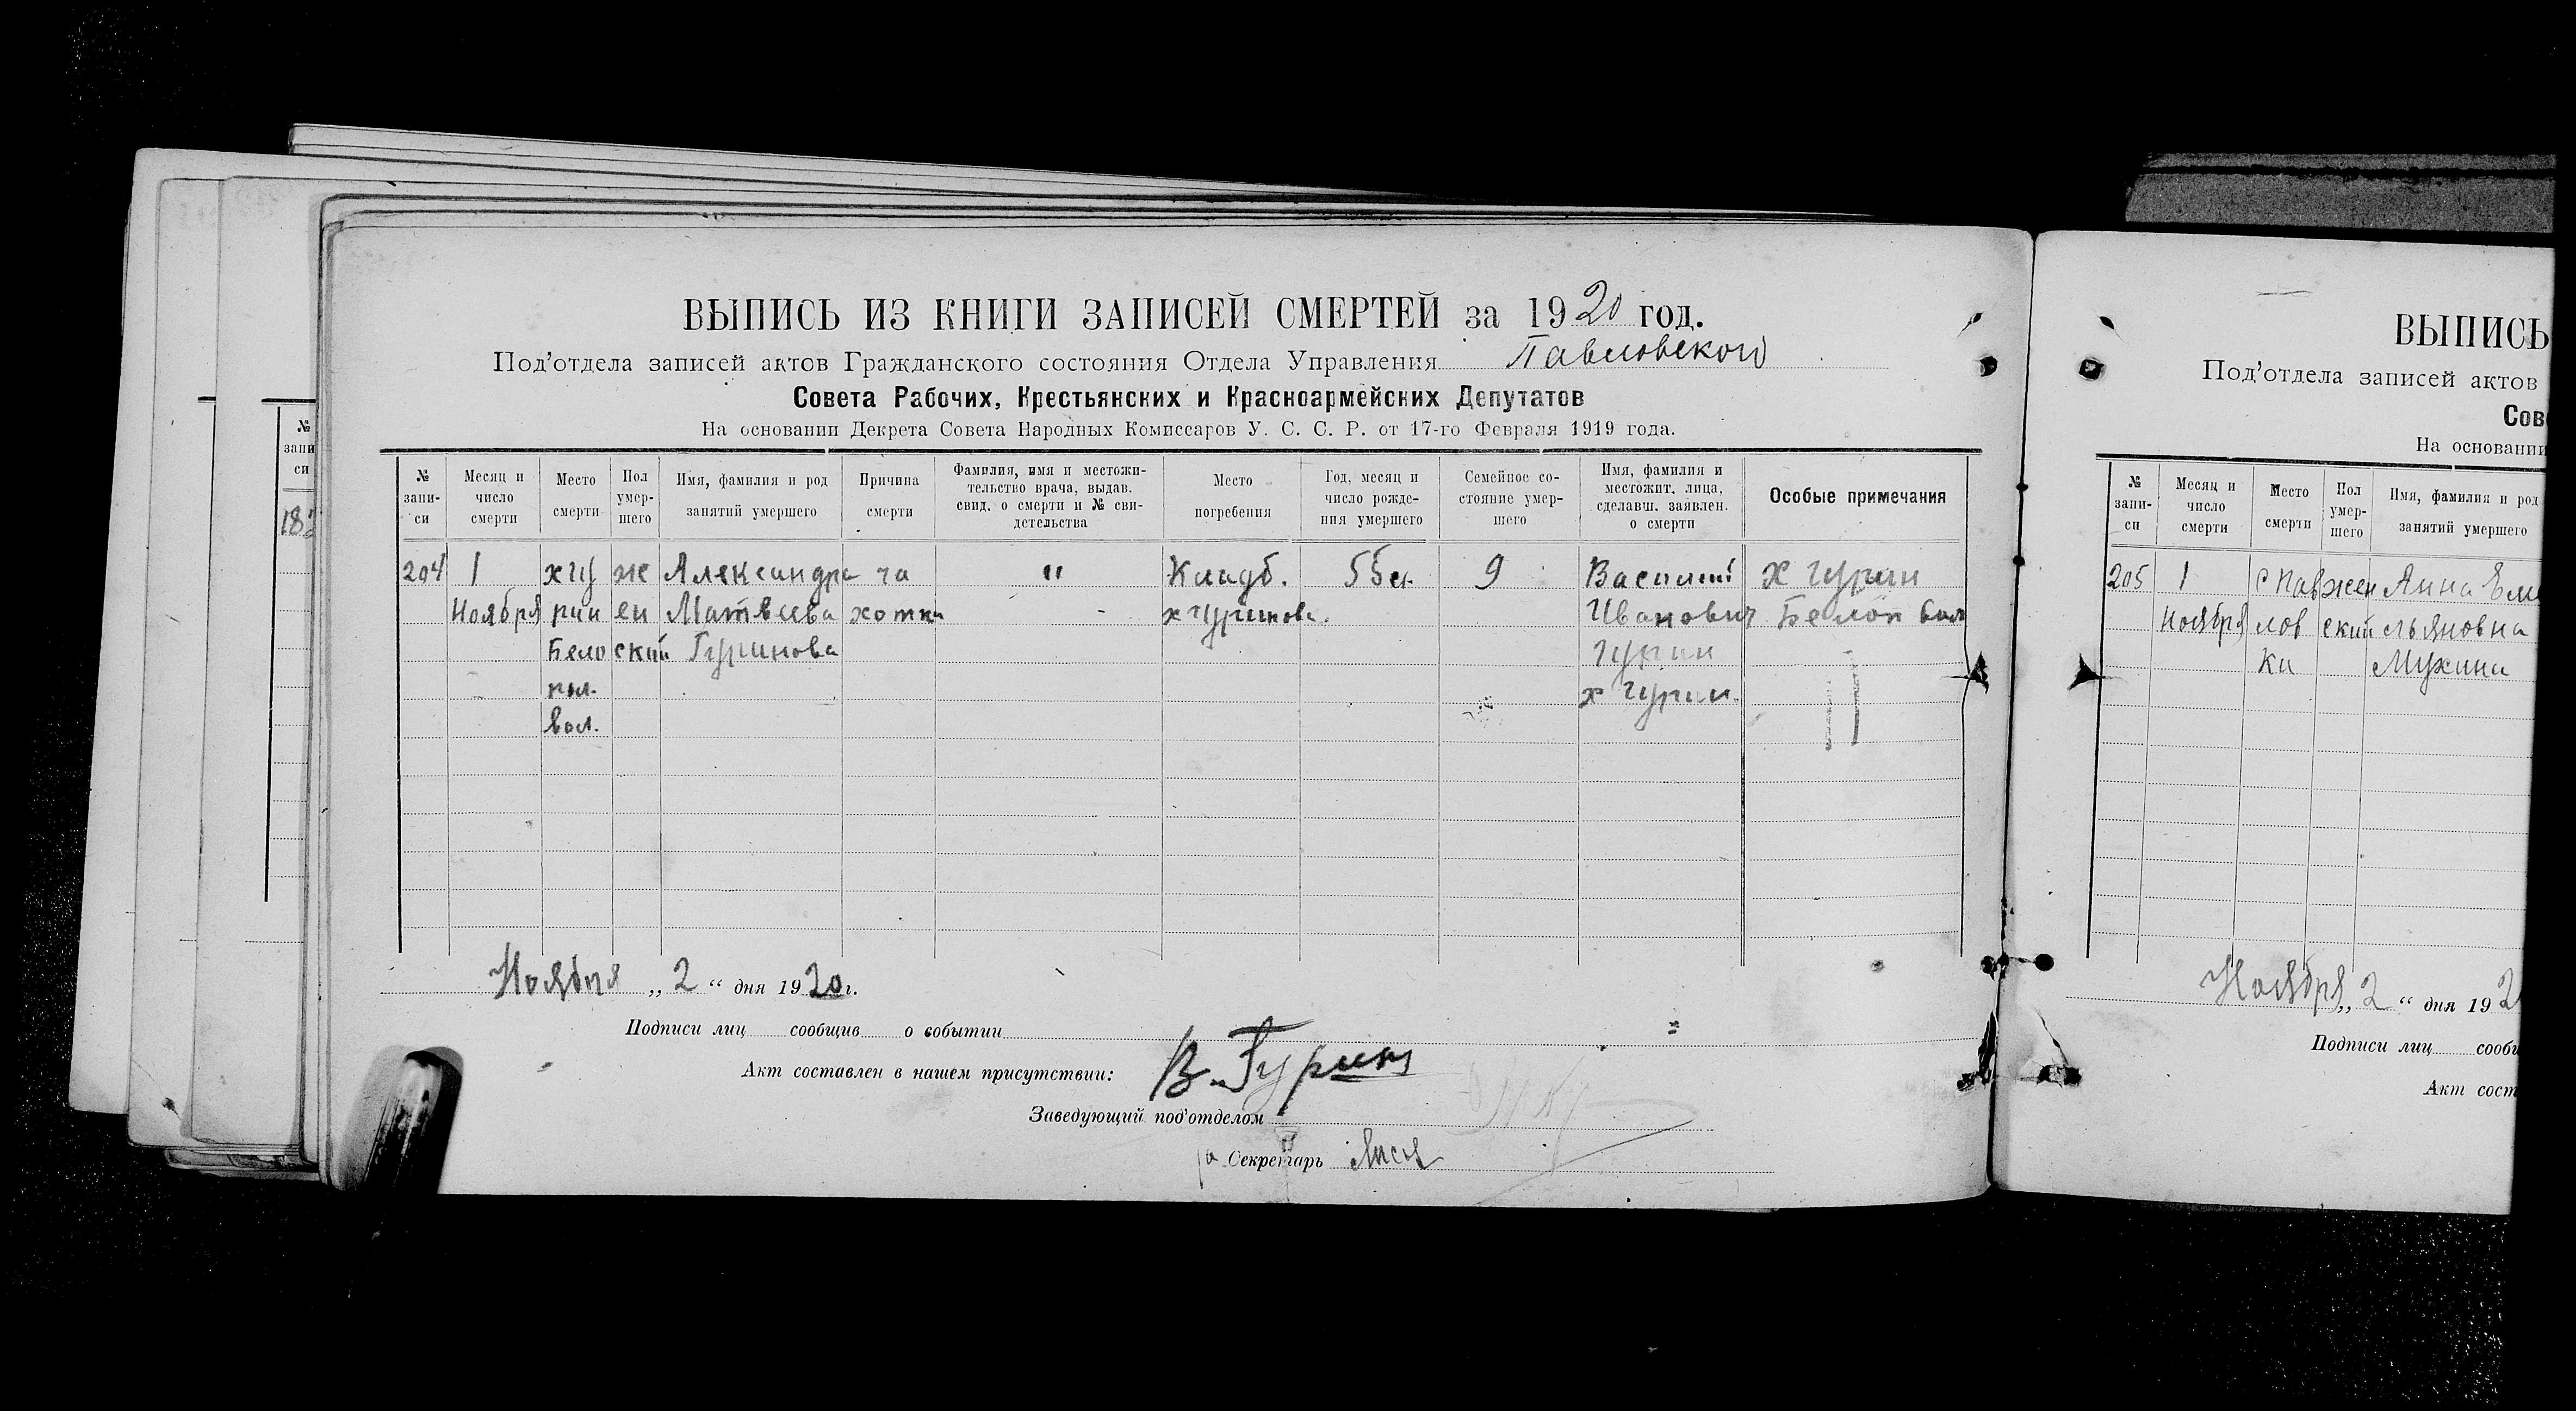 ВЫПИСЬ ИЗ КНИГИ ЗАПИСЕЙ СМЕРТЕЙ за 1920 год.
Под'отдела записей актов Гражданского состояния Отдела Управления Павловского
Совета Рабочих, Крестьянских и Красноармейских Депутатов
На основании Декрета Совета Народных Комиссаров У. С. С. Р. от 17-го Февраля 1919 года.
№ запи-
си
Месяц и
число
смерти
Место
смерти
Пол
умер-
шего
Имя, фамилия и род
занятий умершего
Причина
смерти
Фамилия, имя и местожи-
тельство врача, выдав.
свид. о смерти и № сви-
детельства
Место
погребения
Год, месяц и
число рожде-
ния умершего
Семейное со-
стояние умер-
шего
Имя, фамилия и
местожит. лица,
сделавш. заявлен.
о смерти
Особые примечания
204 1 х гу же Александра ча " Кладб. 55 9 Василий х Гурин
Ноября рин ен Матвеева хотка х Гуринова. Иванович Белоп вол
Бело ский Гуринова Гурин
пол. х Гурин.
вол.
Ноября „ 2 “ дня 1920 г.
Подписи лиц сообщив о событии
Акт составлен в нашем присутствии: В. Гуринъ
Заведующий под'отделом
Секретарь
№
запи
си
183
ВЫПИСЬ
Под'отдела записей актов
Сов
На основании
№
запи-
си
Месяц и
число
смерти
Место
смерти
Пол
умер-
шего
Имя, фамилия и род
занятий умершего
205 1 с Пав жен Анна Еме
Ноября лов ский льяновна
ки Мухина
Ноября „ 2 “ дня 192
Подписи лиц сообщ
Акт сост